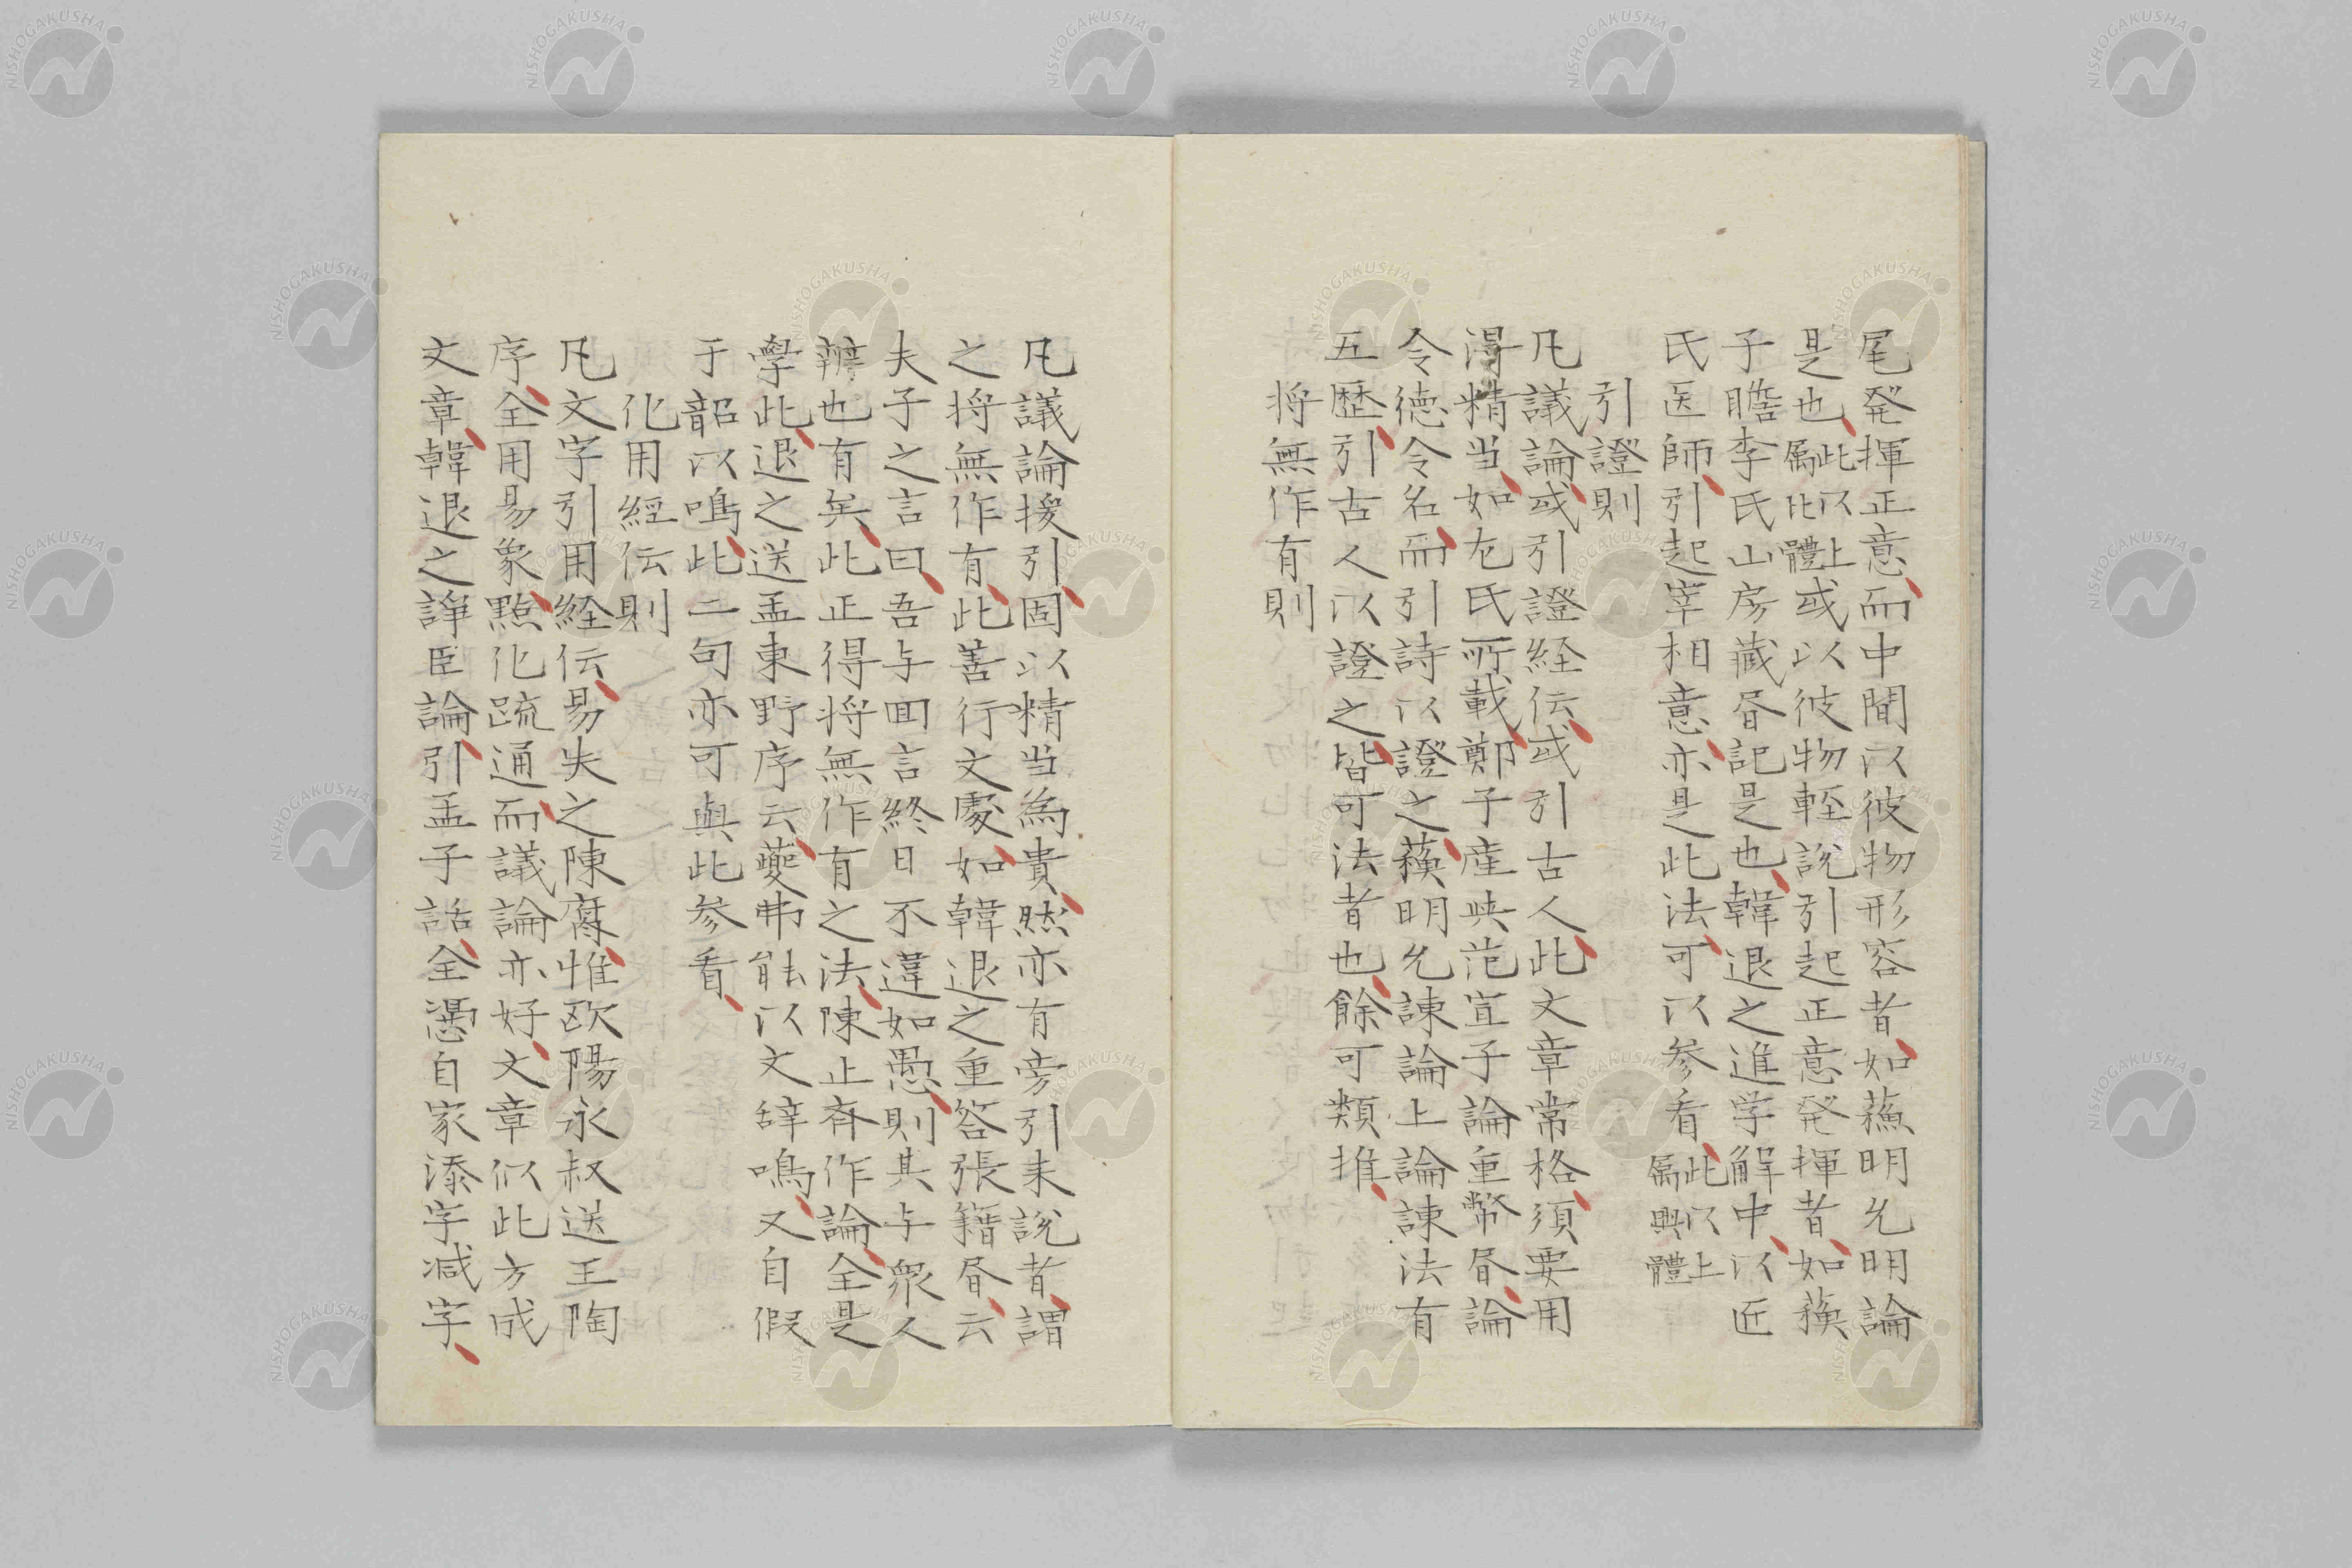 尾発揮正意而中間以彼物形容者如蘓明允明論
是也此以上属比體或以彼物軽説引起正意発揮者如蘓
子瞻李氏山房蔵昏記是也韓退之進学解中以匠
氏医師引起宰相意亦是此法可以参看此以上属興體
引證則
凡議論或引證経伝或引古人此文章常格須要用
得精当如左氏所載鄭子産与范宣子論重幣昏論
令徳令名而引詩以證之蘓明允諌論上論諌法有
五歴引古人以證之皆可法者也餘可類推
将無作有則
凡議論援引固以精当為貴然亦有旁引未説者謂
之将無作有此善行文處如韓退之重答張籍昏云
夫子之言曰吾与回言終日不違如愚則其与衆人
辨也有矣此正得将無作有之法陳止斉作論全是
學此退之送孟東野序云夔弗能以文辞鳴又自假
于韶以鳴此二句亦可與此参看
化用經伝則
凡文字引用経伝易失之陳腐惟欧陽永叔送王陶
序全用易象點化疏通而議論亦好文章似此方成
文章韓退之諍臣論引孟子話全憑自家添字减字
NISHOGAKUSHA